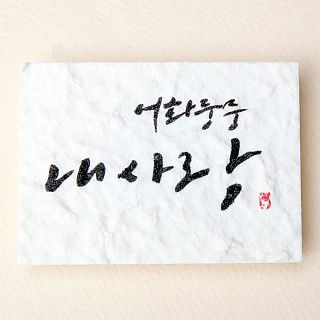 어화둥둥
내사랑